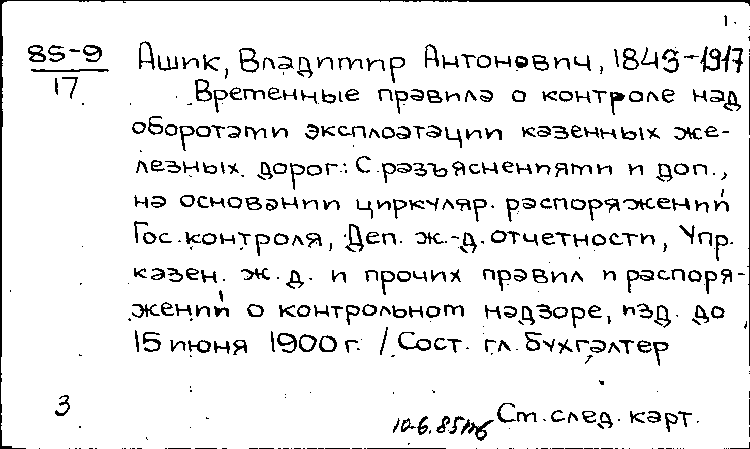 1.
85-9
17
Ашик, Владимир Антонович, 1843-1917
Временные правила о контроле над
оборотами эксплоатации казенных же-
лезных дорог: С разъяснениями и доп.,
на основании циркуляр. распоряжений
Гос. контроля, Деп. ж.-д. отчетности, Упр.
казен. ж. д. и прочих правил и распоря-
жений о контрольном надзоре, изд. до
15 июня 1900 г. / Сост. гл. бухгалтер
3
10.6.85
См. след. карт.